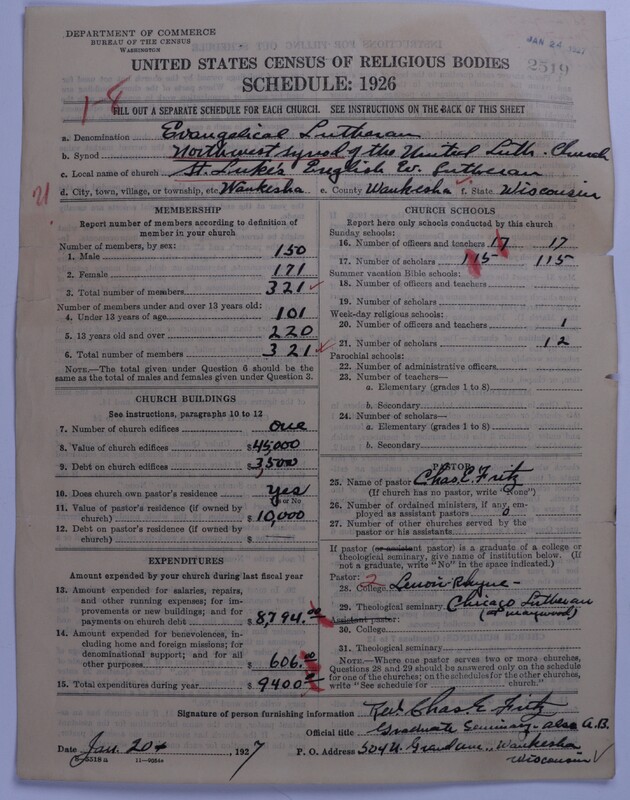 DEPARTMENT OF COMMERCE
BUREAU OF THE CENSUS
WASHINGTON
JAN 24 1927
2519
UNITED STATES CENSUS OF RELIGIOUS BODIES
SCHEDULE: 1926
1-8
FILL OUT A SEPARATE SCHEDULE FOR EACH CHURCH. SEE INSTRUCTIONS ON THE BACK OF THIS SHEET
a. Denomination Evangelical Lutheran
b. Synod Northwest synod of the United Luth. Church
c. Local name of church St. Luke's English Ev. Lutheran
d. City, town, village, or township, etc Waukesha e. County Waukesha f. State Wisconsin
MEMBERSHIP
Report number of members according to definition of
member in your church
Number of members, by sex:
1. Male 150
2. Female 171
3. Total number of members 321
Number of members under and over 13 years old:
4. Under 13 years of age 101
5. 13 years old and over 220
6. Total number of members 321
NOTE.—The total given under Question 6 should be
same as the total of males and females given under Question 3.
CHURCH BUILDINGS
See instructions, paragraphs 10 to 12
7. Number of church edifices one
8. Value of church edifices $45,000
9. Debt on church edifices $3,500
10. Does church own pastor's residence Yes
Yes or No
11. Value of pastor's residence (if owned by
church) $10,000
12. Debt on pastor's residence (if owned by
church) $ —
EXPENDITURES
Amount expended by your church during last fiscal year
13. Amount expended for salaries, repairs,
and other running expenses; for im-
provements or new buildings; and for
payments on church debt $8,794.00
14. Amount expended for benevolences, in-
cluding home and foreign missions; for
denominational support; and for all
other purposes $606.00
15. Total expenditures during year $9400
CHURCH SCHOOLS
Report here only schools conducted by this church
Sunday schools:
16. Number of officers and teachers 17 17
17. Number of scholars 115 115
Summer vacation Bible schools:
18. Number of officers and teachers
19. Number of scholars
Week-day religious schools:
20. Number of officers and teachers 1
21. Number of scholars 12
Parochial schools:
22. Number of administrative officers
23. Number of teachers—
a. Elementary (grades 1 to 8)
b. Secondary
24. Number of scholars—
a. Elementary (grades 1 to 8)
b. Secondary
PASTOR
25. Name of pastor Chas. E. Fritz
(If church has no pastor, write "None")
26. Number of ordained ministers, if any, em-
ployed as assistant pastors 0
27. Number of other churches served by the
pastor or his assistants
If pastor (or assistant pastor) is a graduate of a college or
theological seminary, give name of institution below. (If
not a graduate, write "No" in the space indicated.)
Pastor: 2
28. College Lenoir-Rhyne-
29. Theological seminary Chicago Lutheran
(at maywood)
Assistant pastor:
30. College
31. Theological seminary
NOTE.—Where one pastor serves two or more churches,
Questions 28 and 29 should be answered only on the schedule
for one of the churches; on the schedules for the other churches,
write "See schedule for church."
Signature of person furnishing information Rev. Chas E. Fritz
Official title Graduate Seminary - also A.B.
Date Jan. 20th, 1927 P. O. Address 504 N. Grand ave., Waukesha
Wisconsin